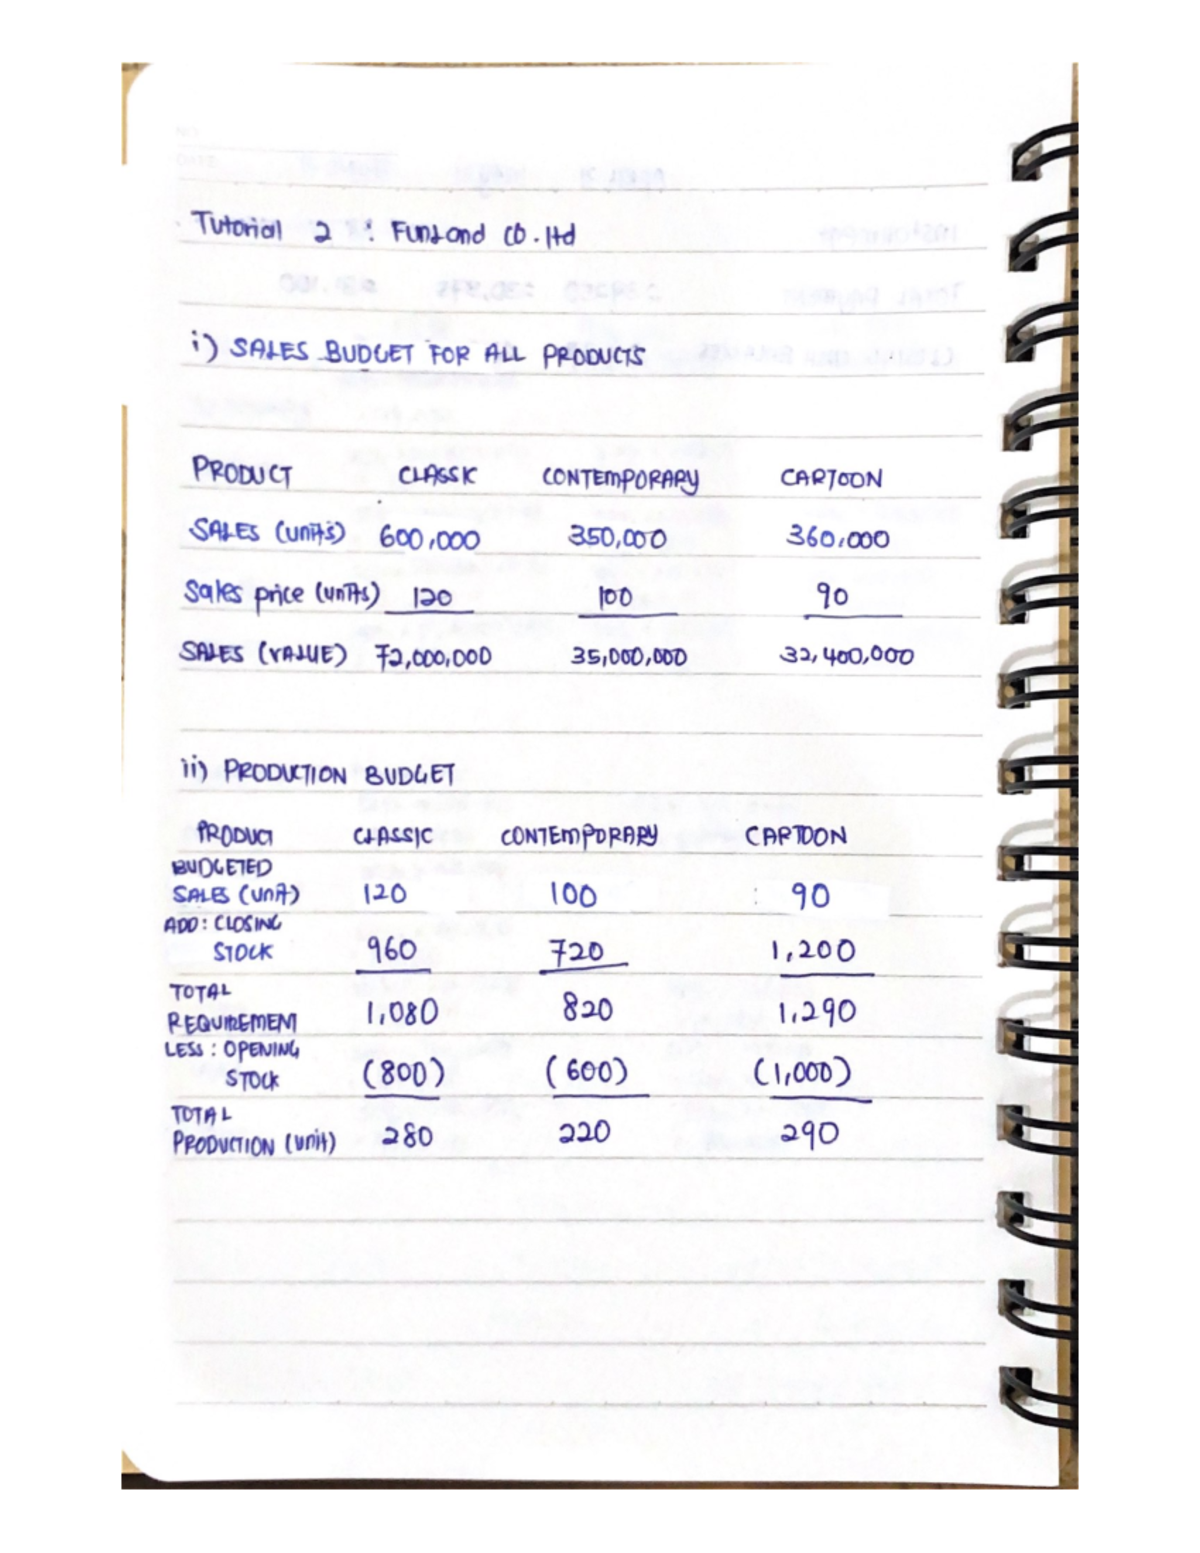 Tutorial 2 : FunLand CO.ltd
i) SALES BUDGET FOR ALL PRODUCTS
PRODUCT CLASSIC CONTEMPORARY CARTOON
SALES (units) 600,000 350,000 360,000
Sales price (units) 120 100 90
SALES (VALUE) 72,000,000 35,000,000 32,400,000
ii) PRODUCTION BUDGET
PRODUCT CLASSIC CONTEMPORARY CARTOON
BUDGETED
SALES (unit) 120 100 90
ADD : CLOSING
STOCK 960 720 1,200
TOTAL
REQUIREMENT 1,080 820 1,290
LESS : OPENING
STOCK (800) (600) (1,000)
TOTAL
PRODUCTION (unit) 280 220 290